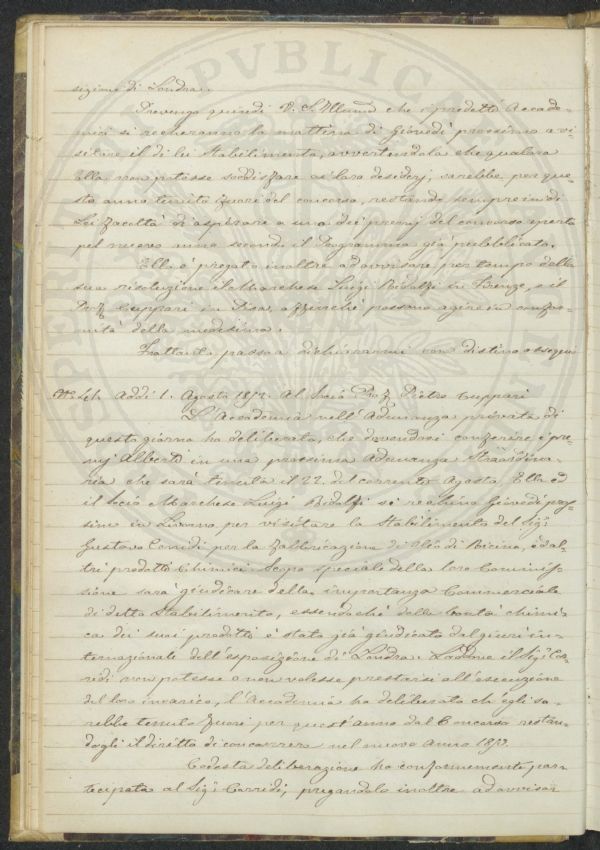 sizione di Londra.
Prevengo quindi V. S. Illuma che i predetti Accade-
mici si recheranno la mattina di Giovedì prossimo a vi-
sitare il di lei Stabilimento, avvertendola che qualora
Ella non potesse soddisfare ai loro desiderj, sarebbe per que-
sta anno tenuto fuori del concorso, restando sempre in di
Lei facoltà d'aspirare a uno dei premj del concorso aperto
pel nuovo anno secondo il Programma già pubblicato.
Ella è pregato inoltre ad avvisare per tempo della
sua risoluzione il Marchese Luigi Ridolfi in Firenze, e il
Prof. Cuppari in Pisa, affinchè possano agire in confor-
mità della medesima.
Frattanto passo a dichiararmi con distinto ossequio
Addì 1. Agosto 1852. Al Socio Prof. Pietro Cuppari
L'Accademia nell'Adunanza privata di
questo giorno ha deliberato, che dovendosi conferire i pre-
mj Alberti in una prossima Adunanza Straordina-
ria che sarà tenuta il 22. del corrente Agosto, Ella ed
il Socio Marchese Luigi Ridolfi si rechino Giovedì pros-
simo in Livorno per visitare lo Stabilimento del Sigr.
Gustavo Corridi per la fabbricazione di Olio di Ricino, e d'al-
tri prodotti Chimici. Scopo speciale della loro Commis-
sione sarà giudicare della importanza Commerciale
di detto Stabilimento, essendochè della bontà chimi-
ca dei suoi prodotti è stato già giudicato dal giurì in-
ternazionale dell'esposizione di Londra. Laddove il Sigr. Cor-
ridi non potesse o non volesse prestarsi all'esecuzione
del loro incarico, l'Accademia ha deliberato ch'egli sa-
rebbe tenuto fuori per quest'anno dal Concorso restan-
dogli il diritto di concorrere nel nuovo anno 1853.
Codesta deliberazione ho conformemente par-
tecipata al Sigr. Corridi, pregandolo inoltre ad avvisar